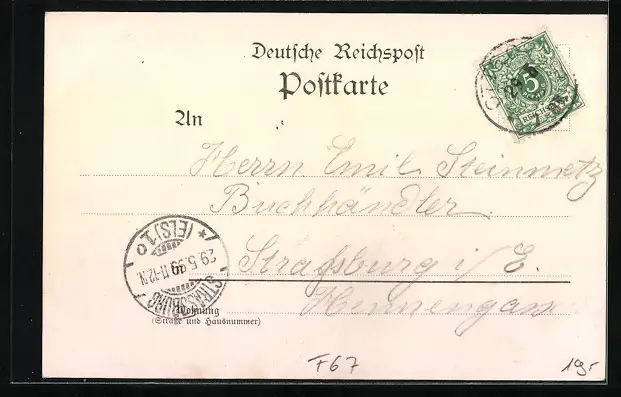 Deutsche Reichspost
Postkarte
5
REICHSPOST
An
Herrn Emil Steinmetz
Buchhändler
Strassburg i/E.
Hennengasse
STRASSBURG * (ELS) 1 c
29.5.99.11-12N.
Wohnung
(Straße und Hausnummer)
F67
19,-